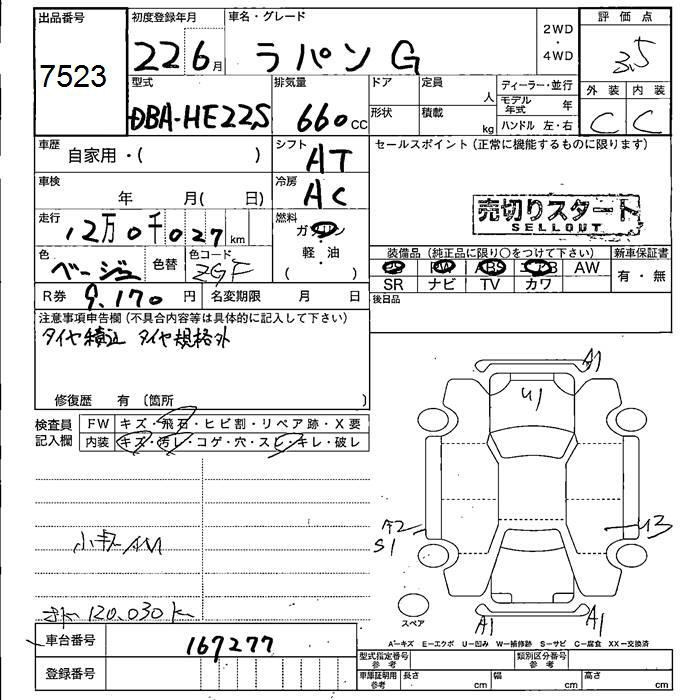 出品番号
7523
初度登録年月
22 6月
車名・グレード
ラパン G
2WD
・
4WD
評価点
3.5
外装 内装
C C
型式
DBA-HE22S
排気量
660cc
ドア
形状
定員
人
積載
kg
ディーラー・並行
モデル年式 年
ハンドル 左・右
車歴
自家用・( )
シフト
AT
セールスポイント(正常に機能するものに限ります)
車検
年 月( 日)
冷房
AC
売切りスタート
SELLOUT
走行
12万0千027km
燃料
ガソリン
軽・油
( )
色
ベージュ
色替
色コード
ZGF
装備品(純正品に限り○をつけて下さい)
新車保証書
PS PW ABS エアB AW
SR ナビ TV カワ
有・無
R券 9,170円
名変期限 月 日
後日品
注意事項申告欄(不具合内容等は具体的に記入して下さい)
タイヤ積込 タイヤ規格外
修復歴 有〔箇所 〕
検査員記入欄
FW キズ・飛石・ヒビ割・リペア跡・X要
内装 キズ・汚レ・コゲ・穴・スレ・キレ・破レ
A1
U1
A2
S1
U3
小キズ AM
120,030k
スペア
A1
A1
A-キズ E-エクボ U-凹み W-補修跡 S-サビ C-腐食 XX-交換済
車台番号
167277
登録番号
型式指定番号
参考
類別区分番号
参考
車庫証明用
参考
長さ cm
幅 cm
高さ cm